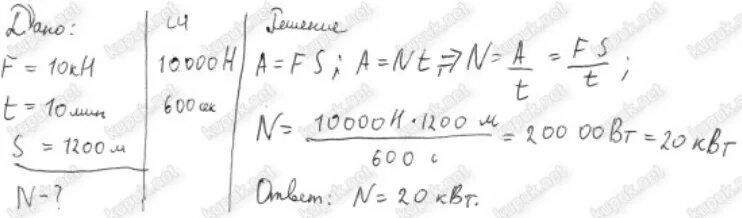 Дано:
F = 10кН
t = 10 мин
S = 1200 м
N - ?
СИ
10.000Н
600 сек
Решение
A = F S; A = N t; => N = A/t = F S/t;
N = 10000Н · 1200 м / 600 с = 20000Вт = 20 кВт
Ответ: N = 20 кВт.
kupuk.net